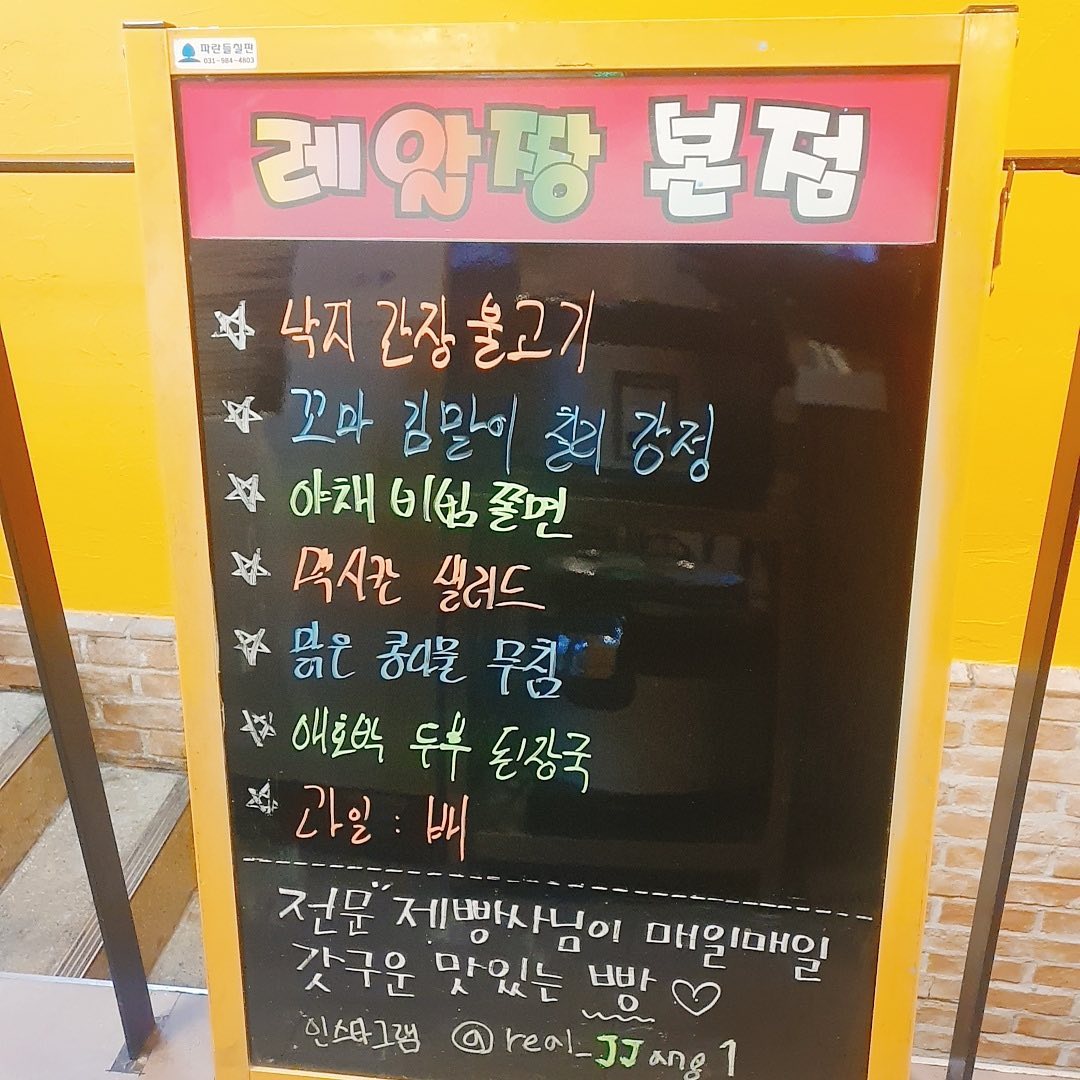 파란들실판
031-984-4803
레알짱 본점
낙지 간장 불고기
꼬마 김말이 칠리 강정
야채 비빔 쫄면
멕시칸 샐러드
맑은 콩나물 무침
애호박 두부 된장국
과일 : 배
전문 제빵사님이 매일매일
갓구운 맛있는 빵 ♡
인스타그램 @real_JJang1